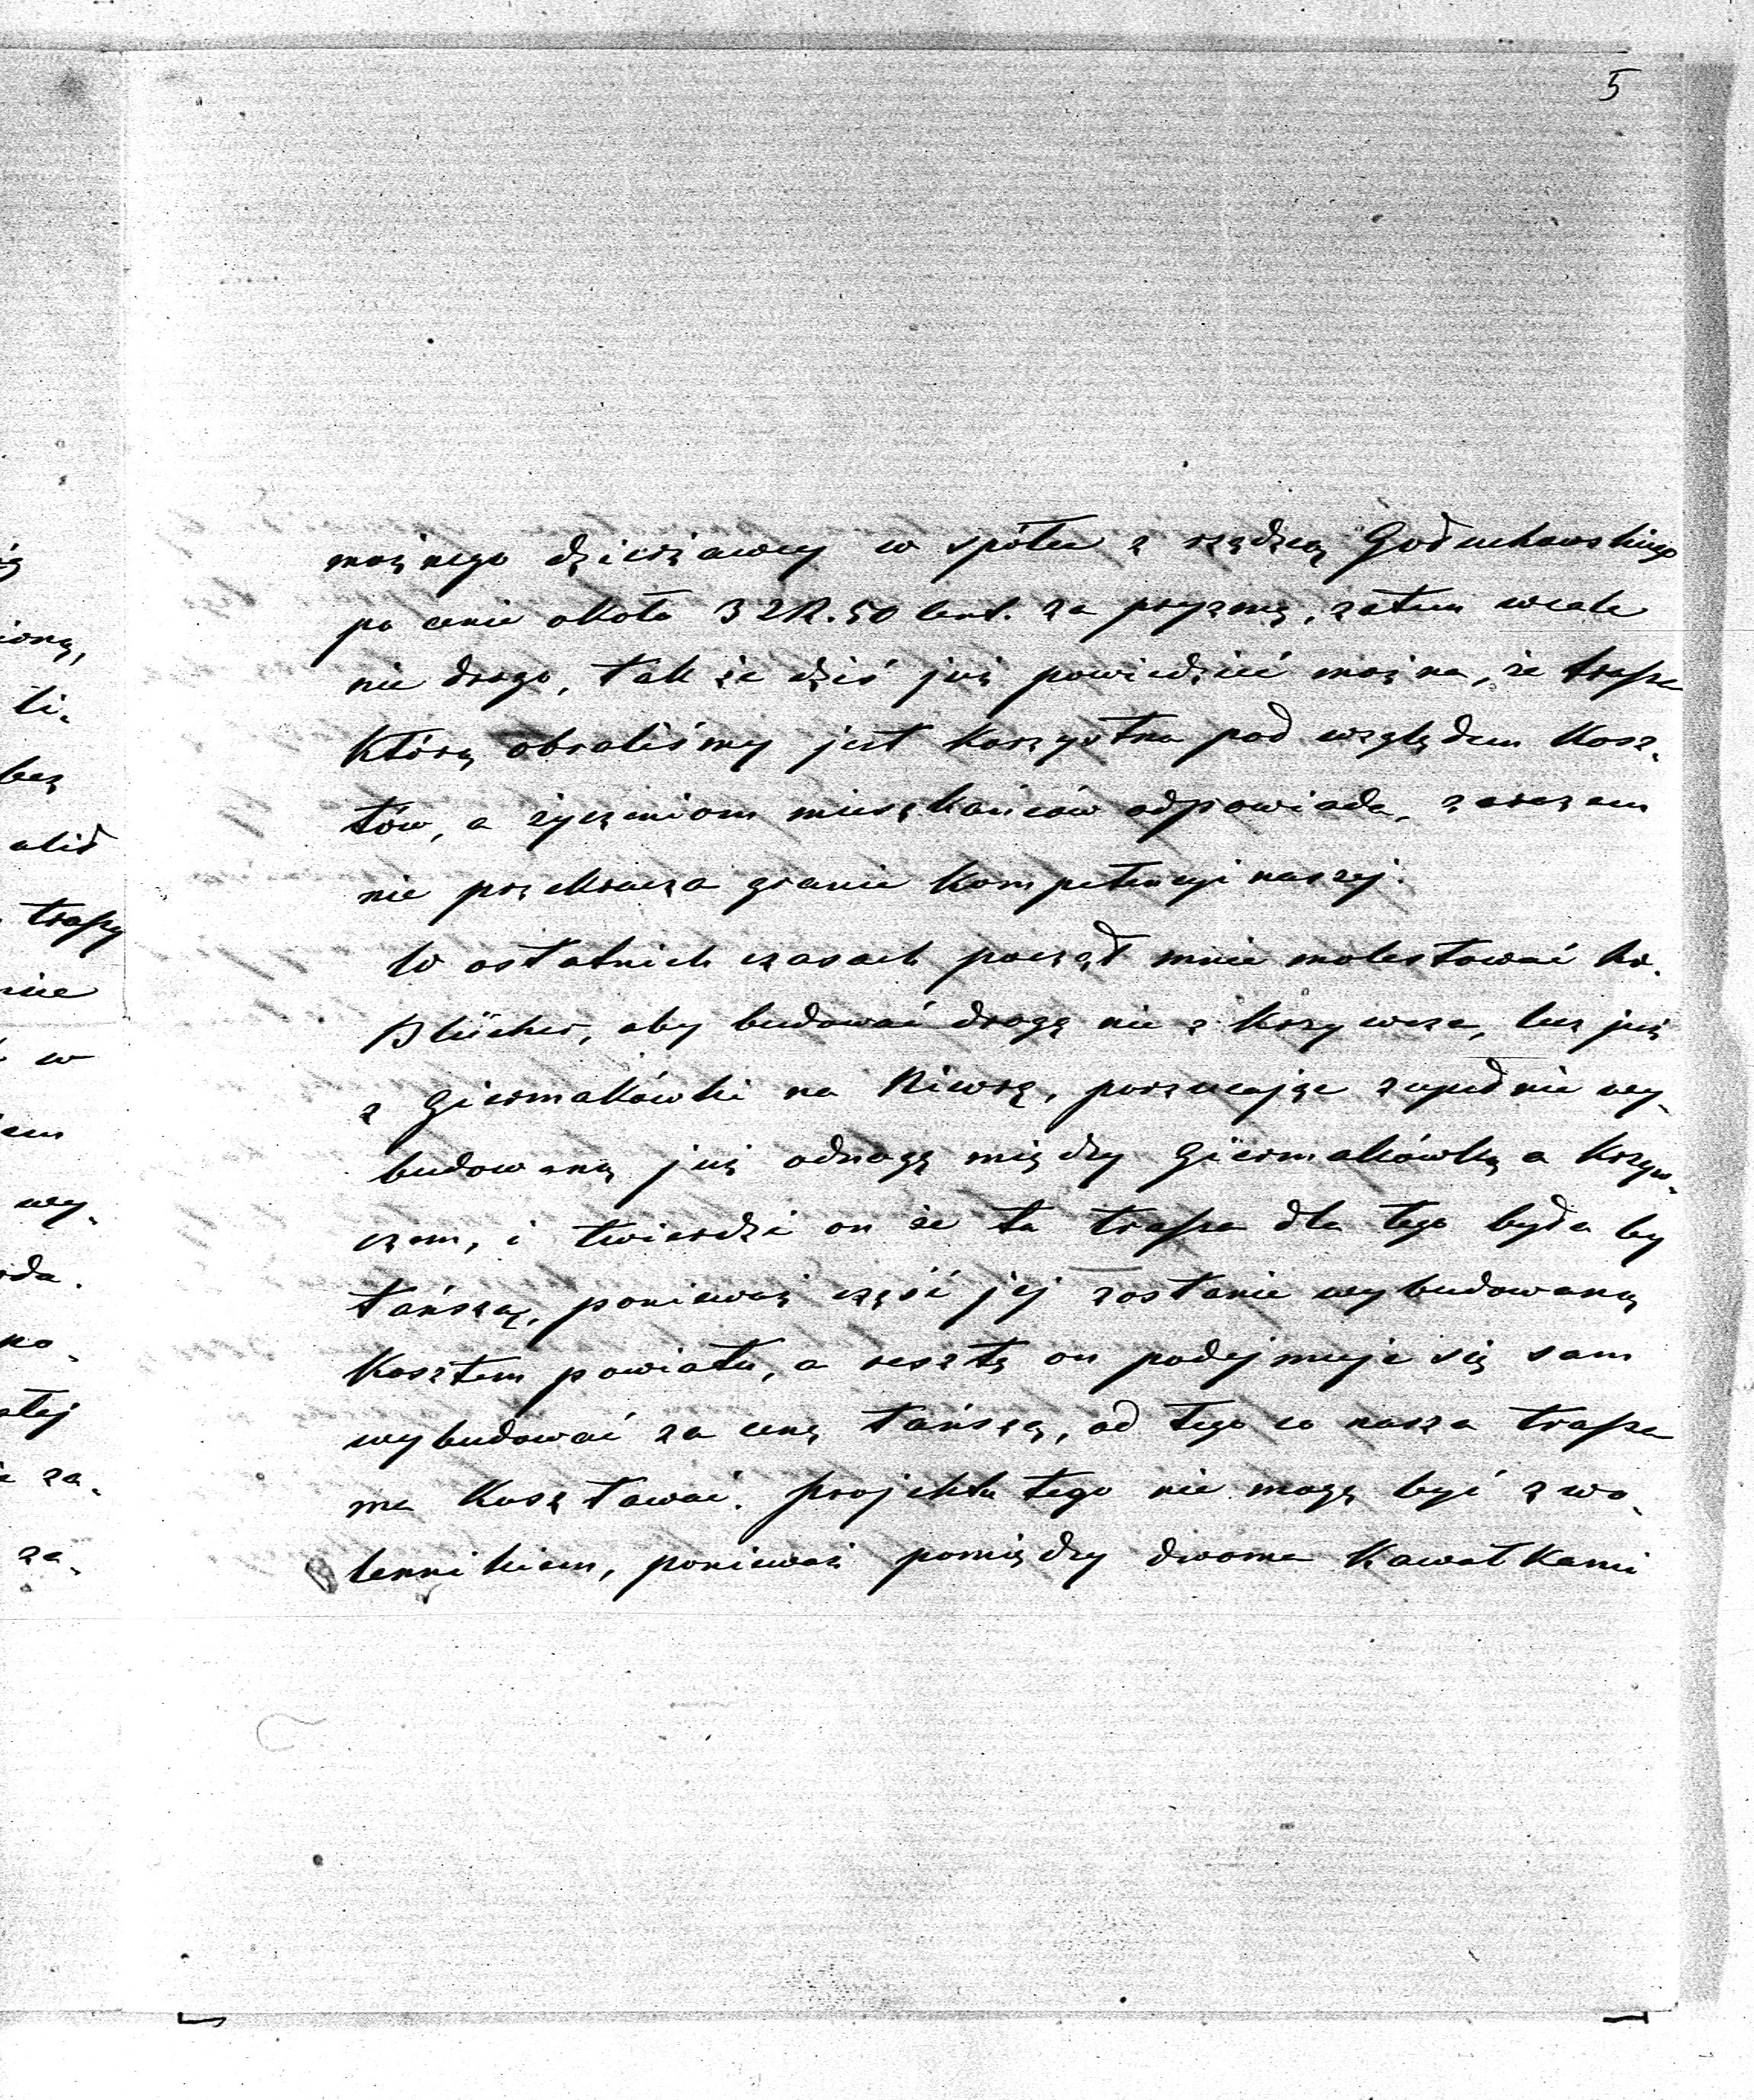 5
możnego dzierżawcy w spółce z rządcą Gołuchowskiego
po cenie około 32 R. 50 cent. za pryzmę, zatem wcale
nie drogo, tak że dziś już powiedzieć można, że trassa
którą obraliśmy jest korzystna pod względem kosz-
tów, a życzeniom mieszkańców odpowiada, zarazem
nie przekracza granic kompetencyi naszej.
W ostatnich czasach począł mnie molestować hr.
Blücher, aby budować drogę nie z Krzywcza, lecz już
z Giermakówki na Niwrę, porzucając zupełnie wy-
budowaną już odnogę między Giermakówką a Krzyw-
czem, i twierdzi on że ta trassa dla tego była by
tańszą, ponieważ część jej zostanie wybudowaną
kosztem powiatu, a resztę on podejmuje się sam
wybudować za cenę tańszą, od tego co nasza trassa
ma kosztować. Projektu tego nie mogę być zwo-
lennikiem, ponieważ pomiędzy dwoma kawałkami
ioną,
li-
bez
trassy
nie
w
wy-
no-
za-
za-